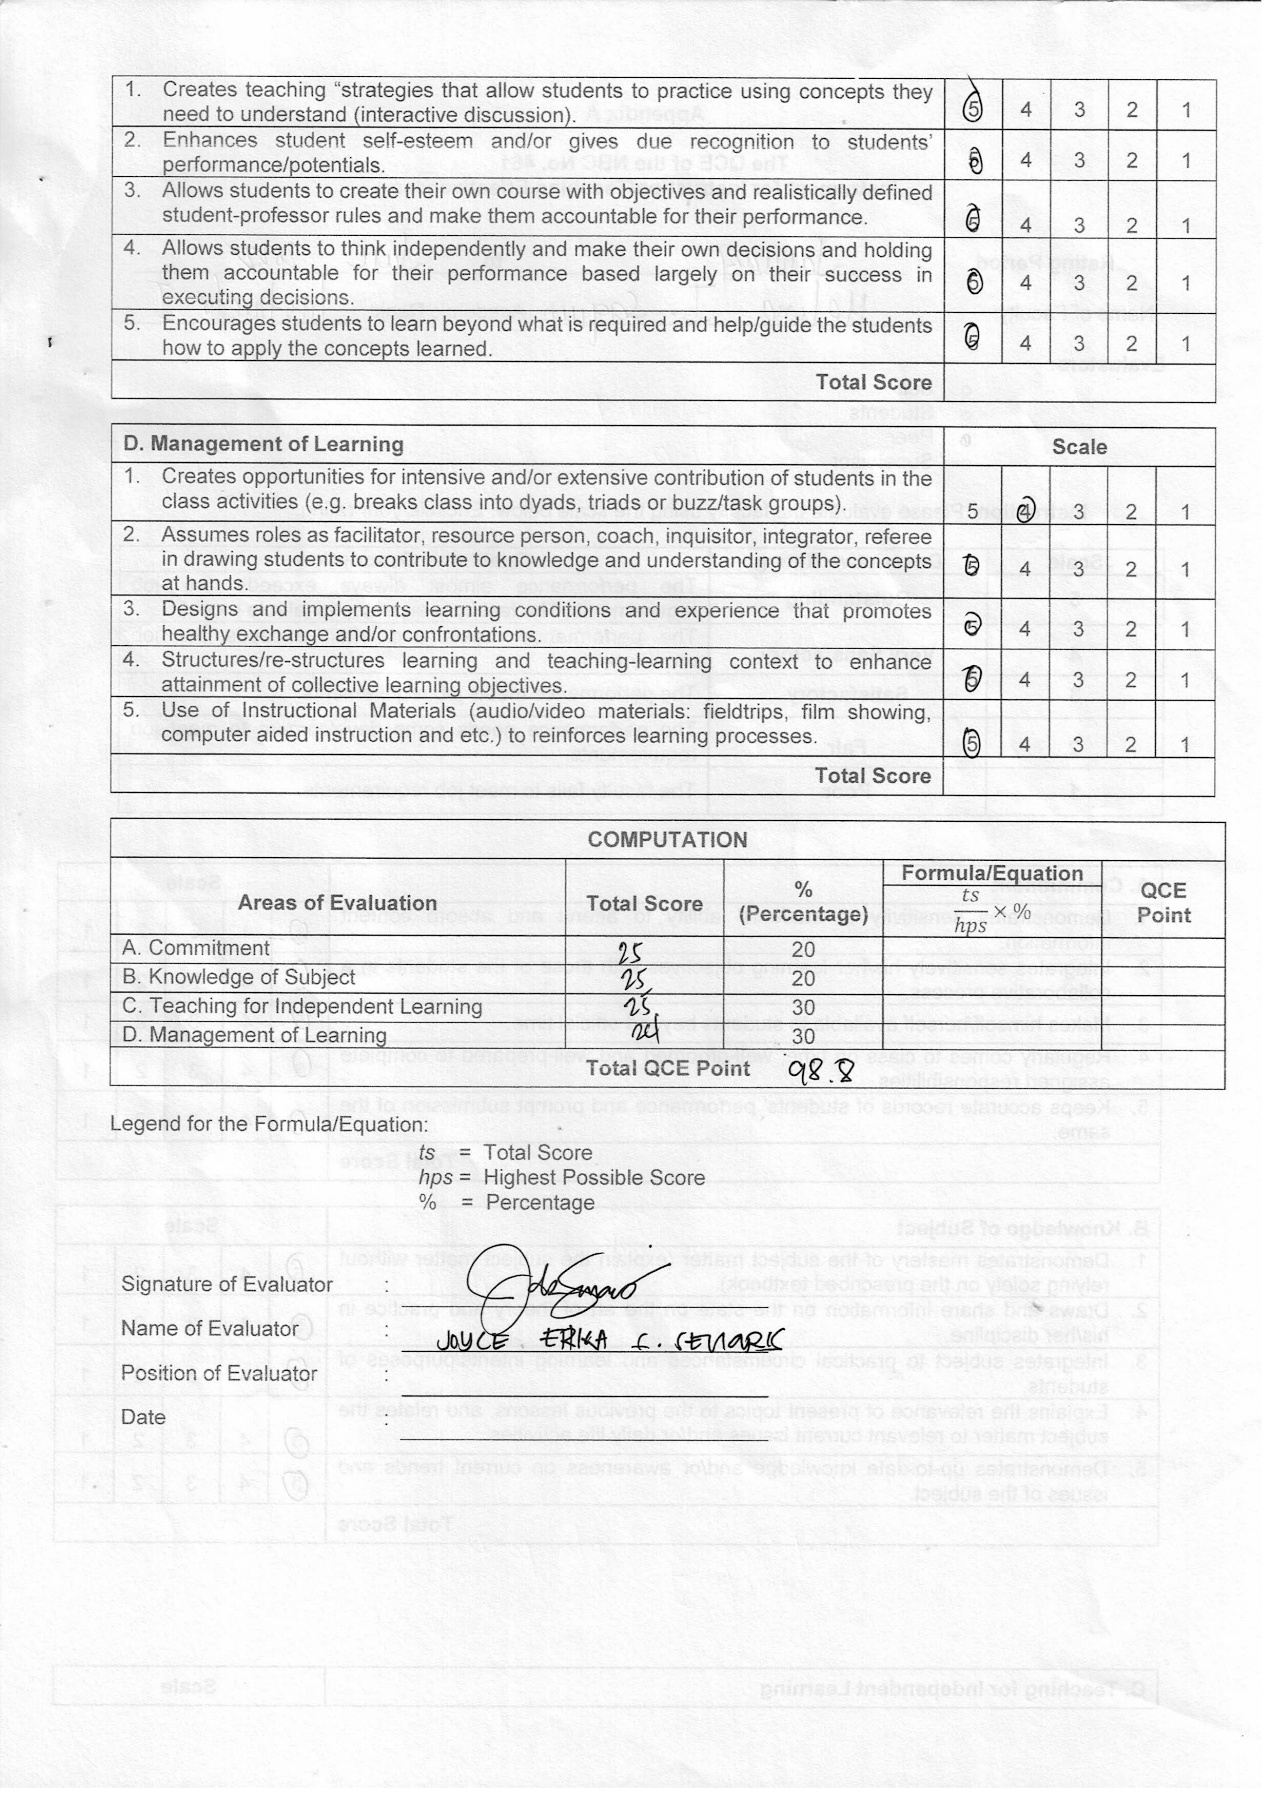 1. Creates teaching “strategies that allow students to practice using concepts they
need to understand (interactive discussion). 5 4 3 2 1
2. Enhances student self-esteem and/or gives due recognition to students’
performance/potentials. 5 4 3 2 1
3. Allows students to create their own course with objectives and realistically defined
student-professor rules and make them accountable for their performance. 5 4 3 2 1
4. Allows students to think independently and make their own decisions and holding
them accountable for their performance based largely on their success in 5 4 3 2 1
executing decisions.
5. Encourages students to learn beyond what is required and help/guide the students
how to apply the concepts learned. 5 4 3 2 1
Total Score
D. Management of Learning Scale
1. Creates opportunities for intensive and/or extensive contribution of students in the
class activities (e.g. breaks class into dyads, triads or buzz/task groups). 5 4 3 2 1
2. Assumes roles as facilitator, resource person, coach, inquisitor, integrator, referee
in drawing students to contribute to knowledge and understanding of the concepts 5 4 3 2 1
at hands.
3. Designs and implements learning conditions and experience that promotes
healthy exchange and/or confrontations. 5 4 3 2 1
4. Structures/re-structures learning and teaching-learning context to enhance
attainment of collective learning objectives. 5 4 3 2 1
5. Use of Instructional Materials (audio/video materials: fieldtrips, film showing,
computer aided instruction and etc.) to reinforces learning processes. 5 4 3 2 1
Total Score
COMPUTATION
Areas of Evaluation Total Score % (Percentage) Formula/Equation ts/hps × % QCE Point
A. Commitment 25 20
B. Knowledge of Subject 25 20
C. Teaching for Independent Learning 25 30
D. Management of Learning 24 30
Total QCE Point 98.8
Legend for the Formula/Equation:
ts = Total Score
hps = Highest Possible Score
% = Percentage
Signature of Evaluator :
Name of Evaluator : JOYCE ERIKA
Position of Evaluator :
Date :